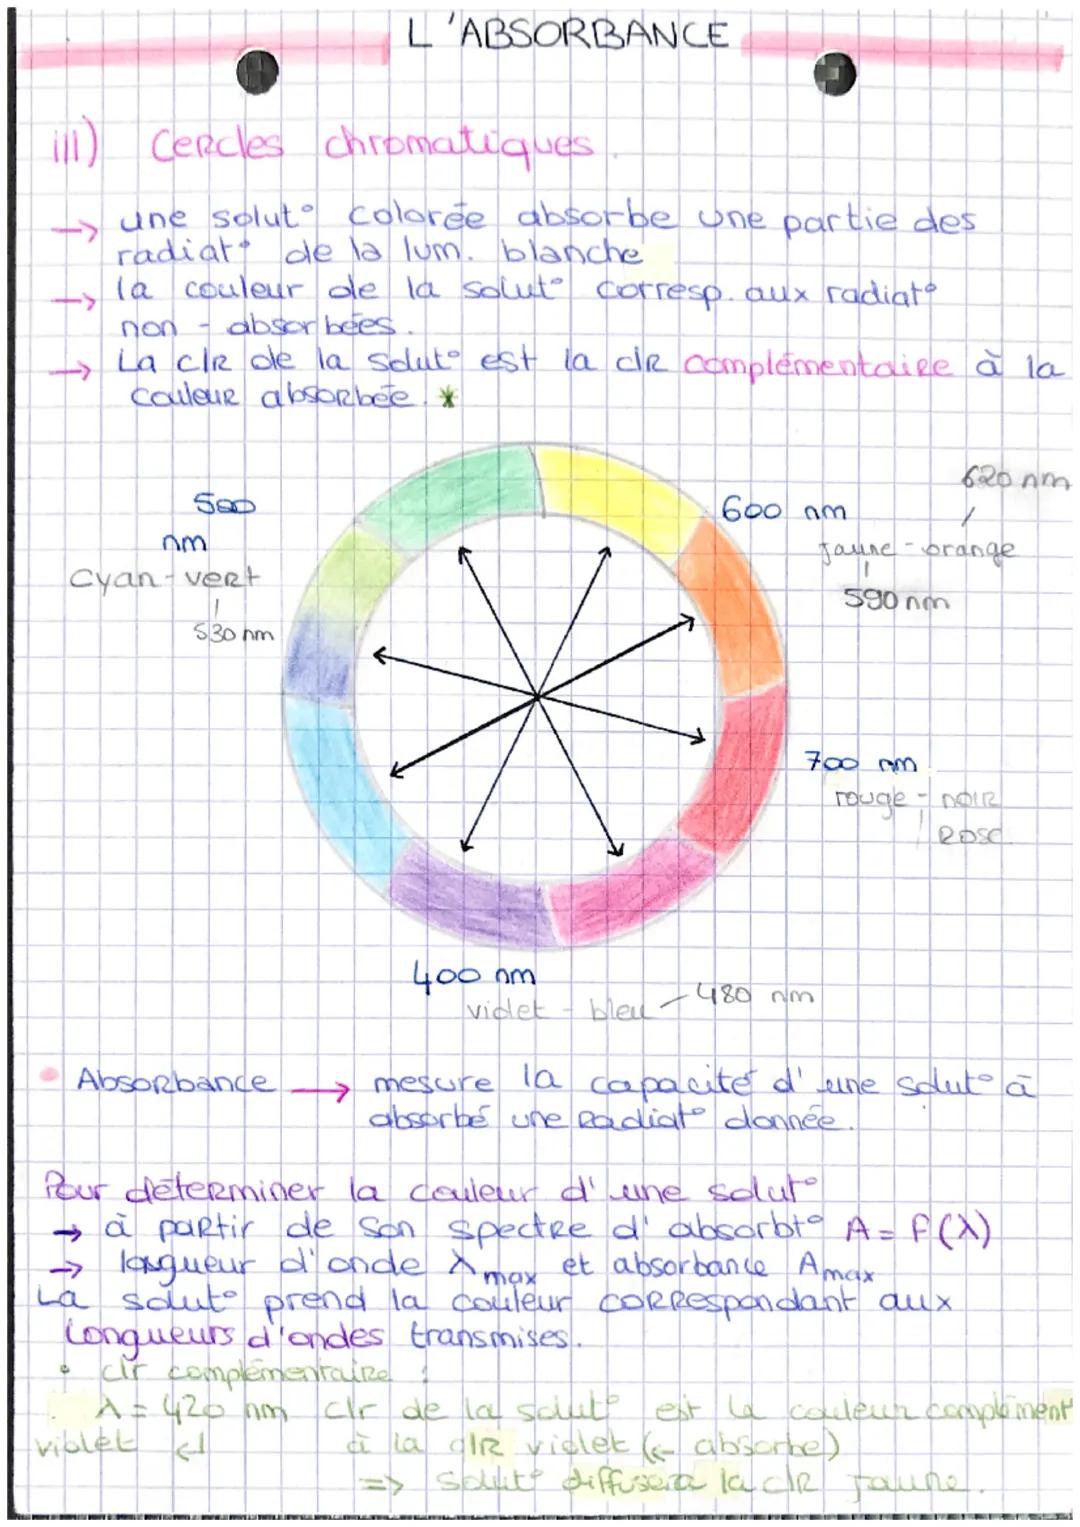 L'ABSORBANCE
iii) Cercles chromatiques.
→ une solut° colorée absorbe une partie des
radiat° de la lum. blanche
→ la couleur de la solut° corresp. aux radiat°
non - absorbées.
→ La clr de la solut° est la clr complémentaire à la
couleur absorbée. *
620 nm
500
600 nm
nm
jaune - orange
cyan - vert
590 nm
530 nm
700 nm
rouge - noir
rose
400 nm
480 nm
violet - bleu
• Absorbance → mesure la capacité d'une solut° à
absorbé une radiat° donnée.
Pour déterminer la couleur d'une solut°
→ à partir de son spectre d'absorbt° A = f(λ)
→ longueur d'onde λmax et absorbance Amax
La solut° prend la couleur correspondant aux
longueurs d'ondes transmises.
• clr complémentaire :
λ = 420 nm clr de la solut° est la couleur complément
violet ↵ à la clr violet (← absorbe)
=> solut° diffusera la clr jaune.